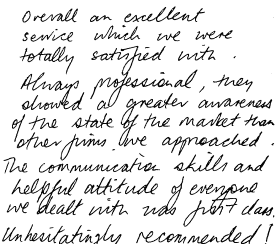 Overall an excellent
service which we were
totally satisfied with.
Always professional, they
showed a greater awareness
of the state of the market than
other firms we approached.
The communication skills and
helpful attitude of everyone
we dealt with was first class.
Unhesitatingly recommended!